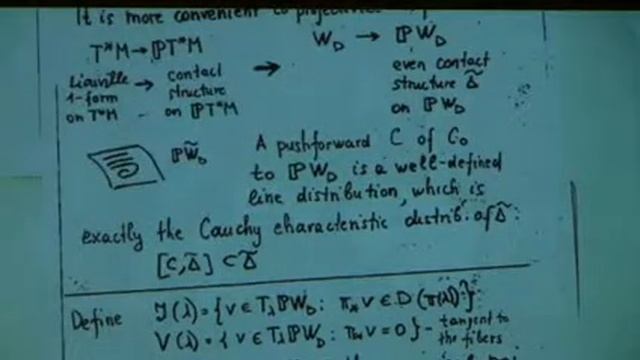 It is more convenient to projectivize
T*M → ℙT*M
W_D → ℙW_D
Liouville 1-form on T*M → contact structure on ℙT*M
→
even contact structure Δ̃ on ℙW_D
ℙW̃_D
A pushforward C of C₀
to ℙW_D is a well-defined
line distribution, which is
exactly the Cauchy characteristic distrib. of Δ̃:
[C, Δ̃] ⊂ Δ̃
Define J(λ) = {v ∈ T_λ ℙW_D : π_* v ∈ D(π(λ))}
V(λ) = {v ∈ T_λ ℙW_D : π_* v = 0} - tangent to the fibers